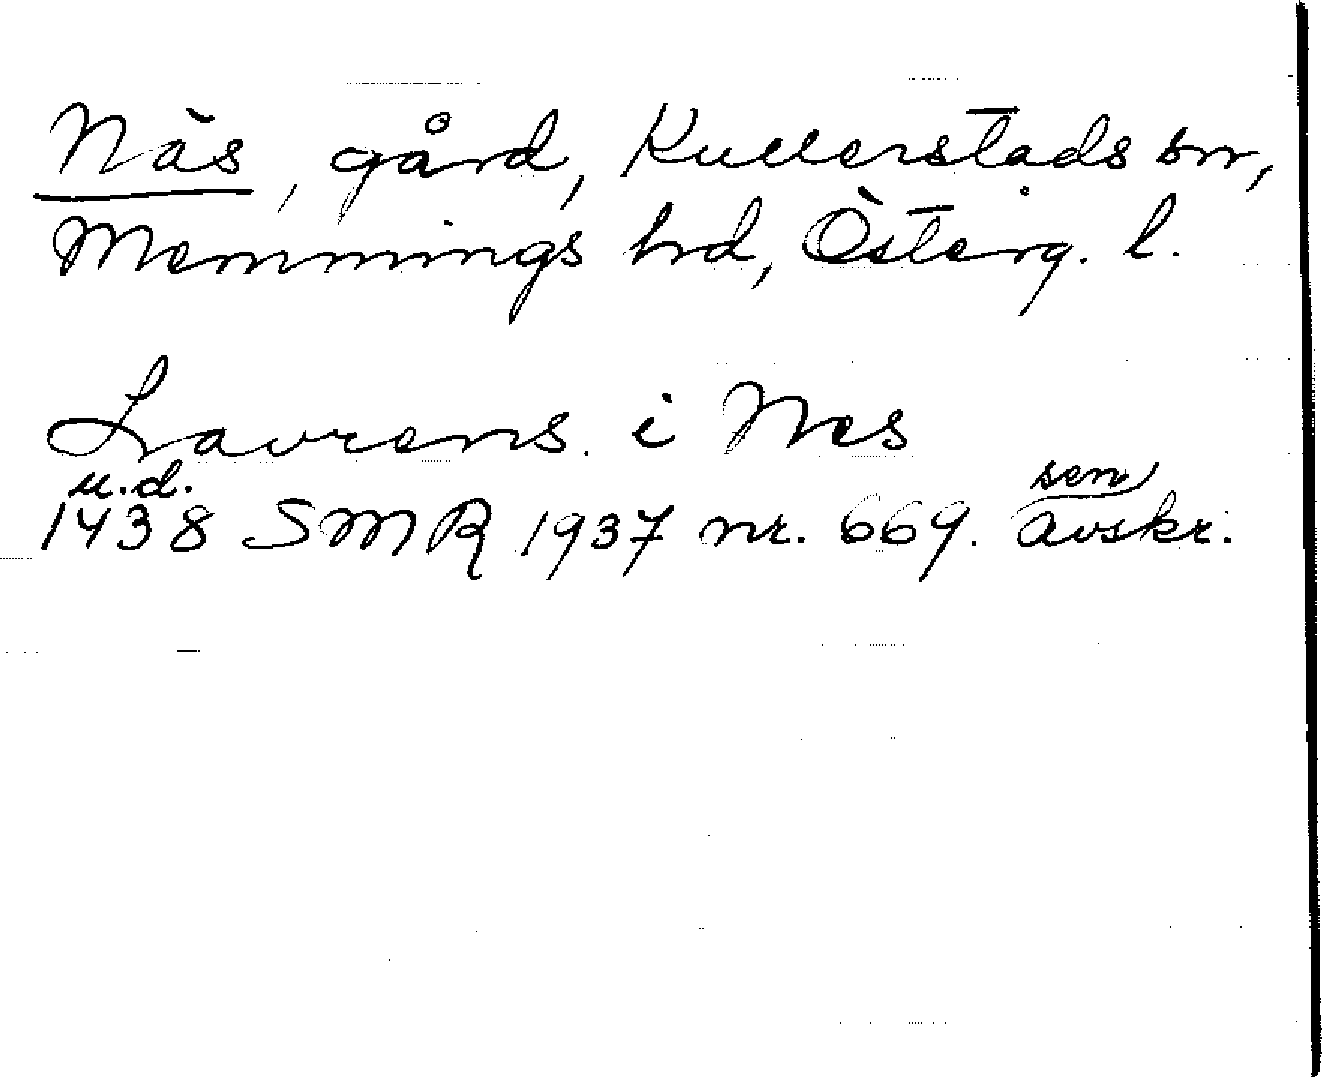 Näs, gård, Kullerstads sn,
Memmings hd, Österg. l.
Laurens i Nes
u.d.
1438 SMR 1937 nr. 669. sen avskr.